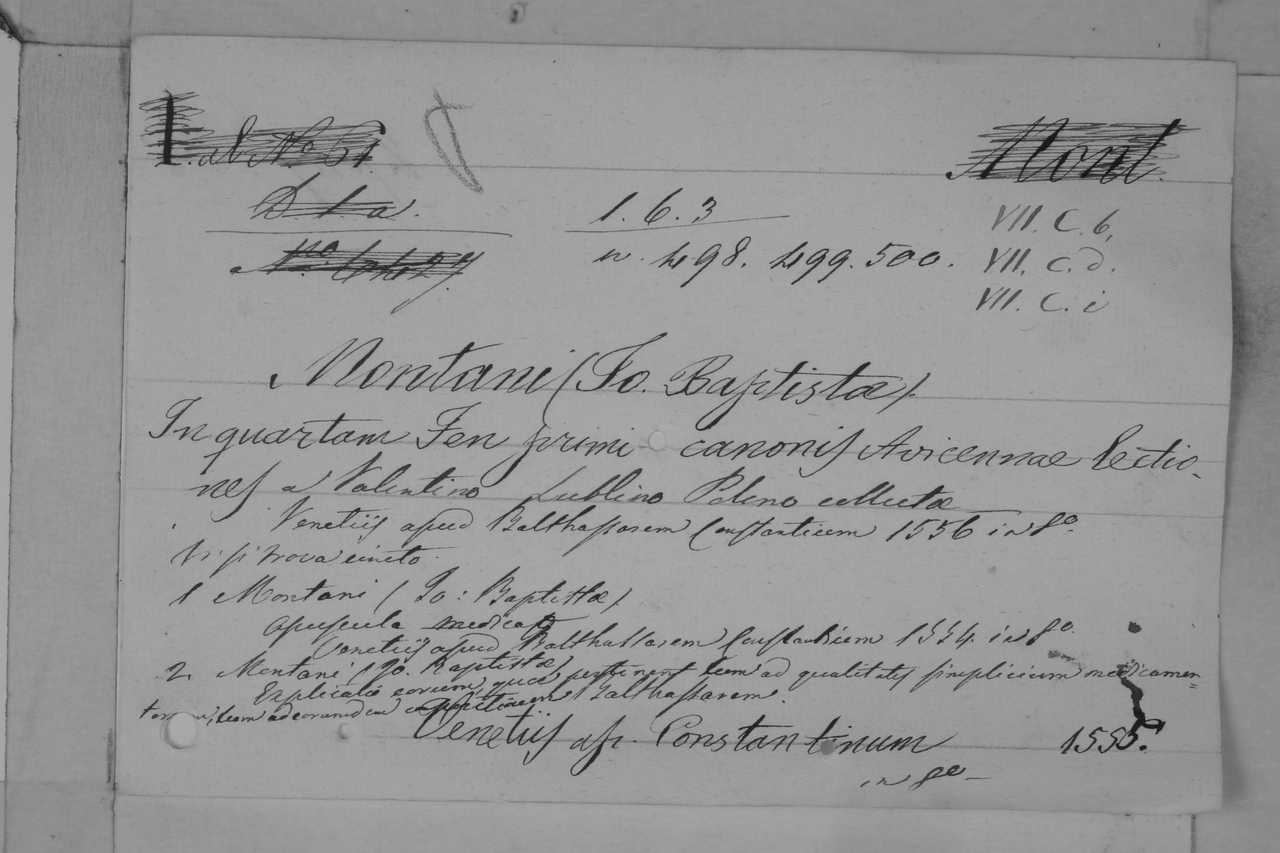 al No 51
Mont.
D 1 a.
1. 6. 3
VII. C. b,
No. 6427.
n. 498. 499. 500.
VII. C. d.
VII. C. i
Montani (Jo. Baptistæ).
In quartam Fen primi canonis Avicennæ lectio-
nes a Valentino Lublino Polono collectæ
Venetiis apud Balthassarem Constantinum 1556 in 8o.
Vi si trova unito
1 Montani (Jo: Baptistæ)
opuscula medica
Venetiis apud Balthassarem Constantinum 1554. in 8o.
2. Montani (Jo. Baptistæ)
Explicatio eorum, quæ pertinent tum ad qualitates simplicium medicamen=
torum, tum ad eorumdem compositionem Balthassarem.
Venetiis ap. Constantinum 1555.
in 8o